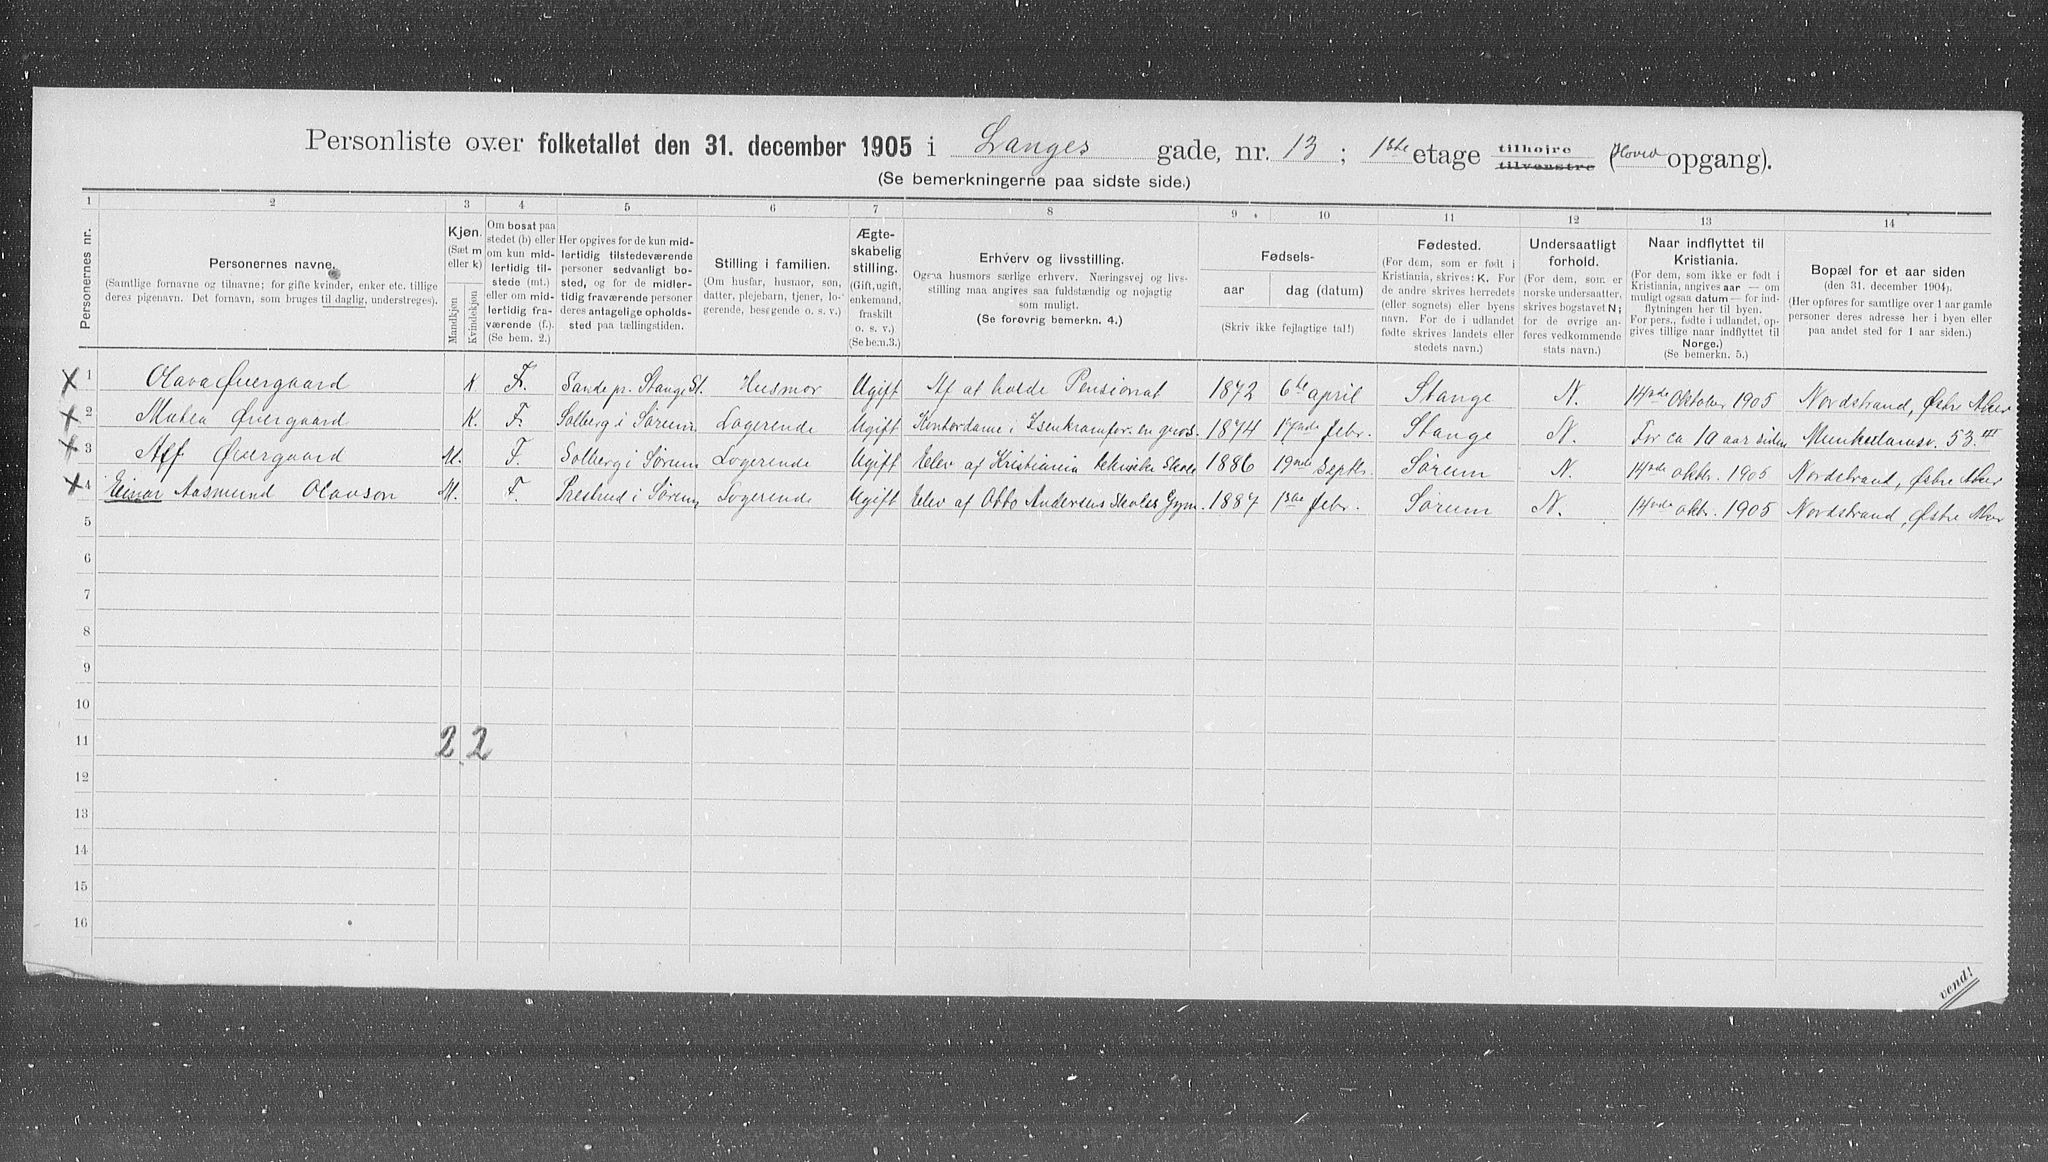 Personliste over folketallet den 31. december 1905 i Langes gade, nr. 13; 1ste etage tilhøire tilvenstre (Hoved opgang).
(Se bemerkningerne paa sidste side.)
1 2 3 4 5 6 7 8 9 10 11 12 13 14
Personernes nr.
Personernes navne.
(Samtlige fornavne og tilnavne; for gifte kvinder, enker etc. tillige deres pigenavn. Det fornavn, som bruges til daglig, understreges).
Kjøn.
(Sæt m eller k)
Mandkjøn
Kvindekjøn
Om bosat paa stedet (b) eller om kun midlertidig tilstede (mt.) eller om midlertidig fraværende (f.) (Se bem. 2.)
Her opgives for de kun midlertidig tilstedeværende personer sedvanligt bosted, og for de midlertidig fraværende personer deres antagelige opholdssted paa tællingstiden.
Stilling i familien.
(Om husfar, husmor, søn, datter, plejebarn, tjener, logerende, besøgende o. s. v.)
Ægteskabelig stilling.
(Gift, ugift, enkemand, fraskilt o. s. v.)
(Se bem.3.)
Erhverv og livsstilling.
Ogsaa husmors særlige erhverv. Næringsvej og livsstilling maa angives saa fuldstændig og nøjagtig som muligt.
(Se forøvrig bemerkn. 4.)
Fødsels-
aar
dag (datum)
(Skriv ikke fejlagtige tal!)
Fødested.
(For dem, som er født i Kristiania, skrives: K. For de andre skrives herredets (eller sognets) eller byens navn. For de i udlandet fødte skrives landets eller stedets navn.)
Undersaatligt forhold.
(For dem, som er norske undersaatter, skrives bogstavet N; for de øvrige anføres vedkommende stats navn.)
Naar indflyttet til Kristiania.
(For dem, som ikke er født i Kristiania, angives aar — om muligt ogsaa datum — for indflytningen her til byen. For pers., fødte i udlandet, opgives tillige naar indflyttet til Norge.)
(Se bemerkn. 5.)
Bopæl for et aar siden
(den 31. december 1904).
(Her opføres for samtlige over 1 aar gamle personer deres adresse her i byen eller paa andet sted for 1 aar siden.)
1 Olava Øvergaard K F. Sande pr. Stange St. Husmor Ugift Af at holde Pensionat 1872 6te april Stange N. 14nde Oktober 1905 Nordstrand, Østre Aker
2 Malea Øvergaard K. F. Solberg i Sørum Logerende Ugift Kontordame i Isenkramfor. en gros. 1874 17nde febr. Stange N. For ca 10 aar siden Munkedamsv. 53 III
3 Alf Øvergaard M. F. Solberg i Sørum Logerende Ugift Elev af Kristiania tekniske Skole 1886 19nde Septbr. Sørum N. 14nde oktbr. 1905 Nordstrand, Østre Aker
4 Einar Aasmund Olavson M. F. Prestrud i Sørum Logerende Ugift Elev af Otto Andersens Skoles Gym. 1887 1ste febr. Sørum N. 14nde oktr. 1905 Nordstrand, Østre Aker
5
6
7
8
9
10
11 2 2
12
13
14
15
16
vend!